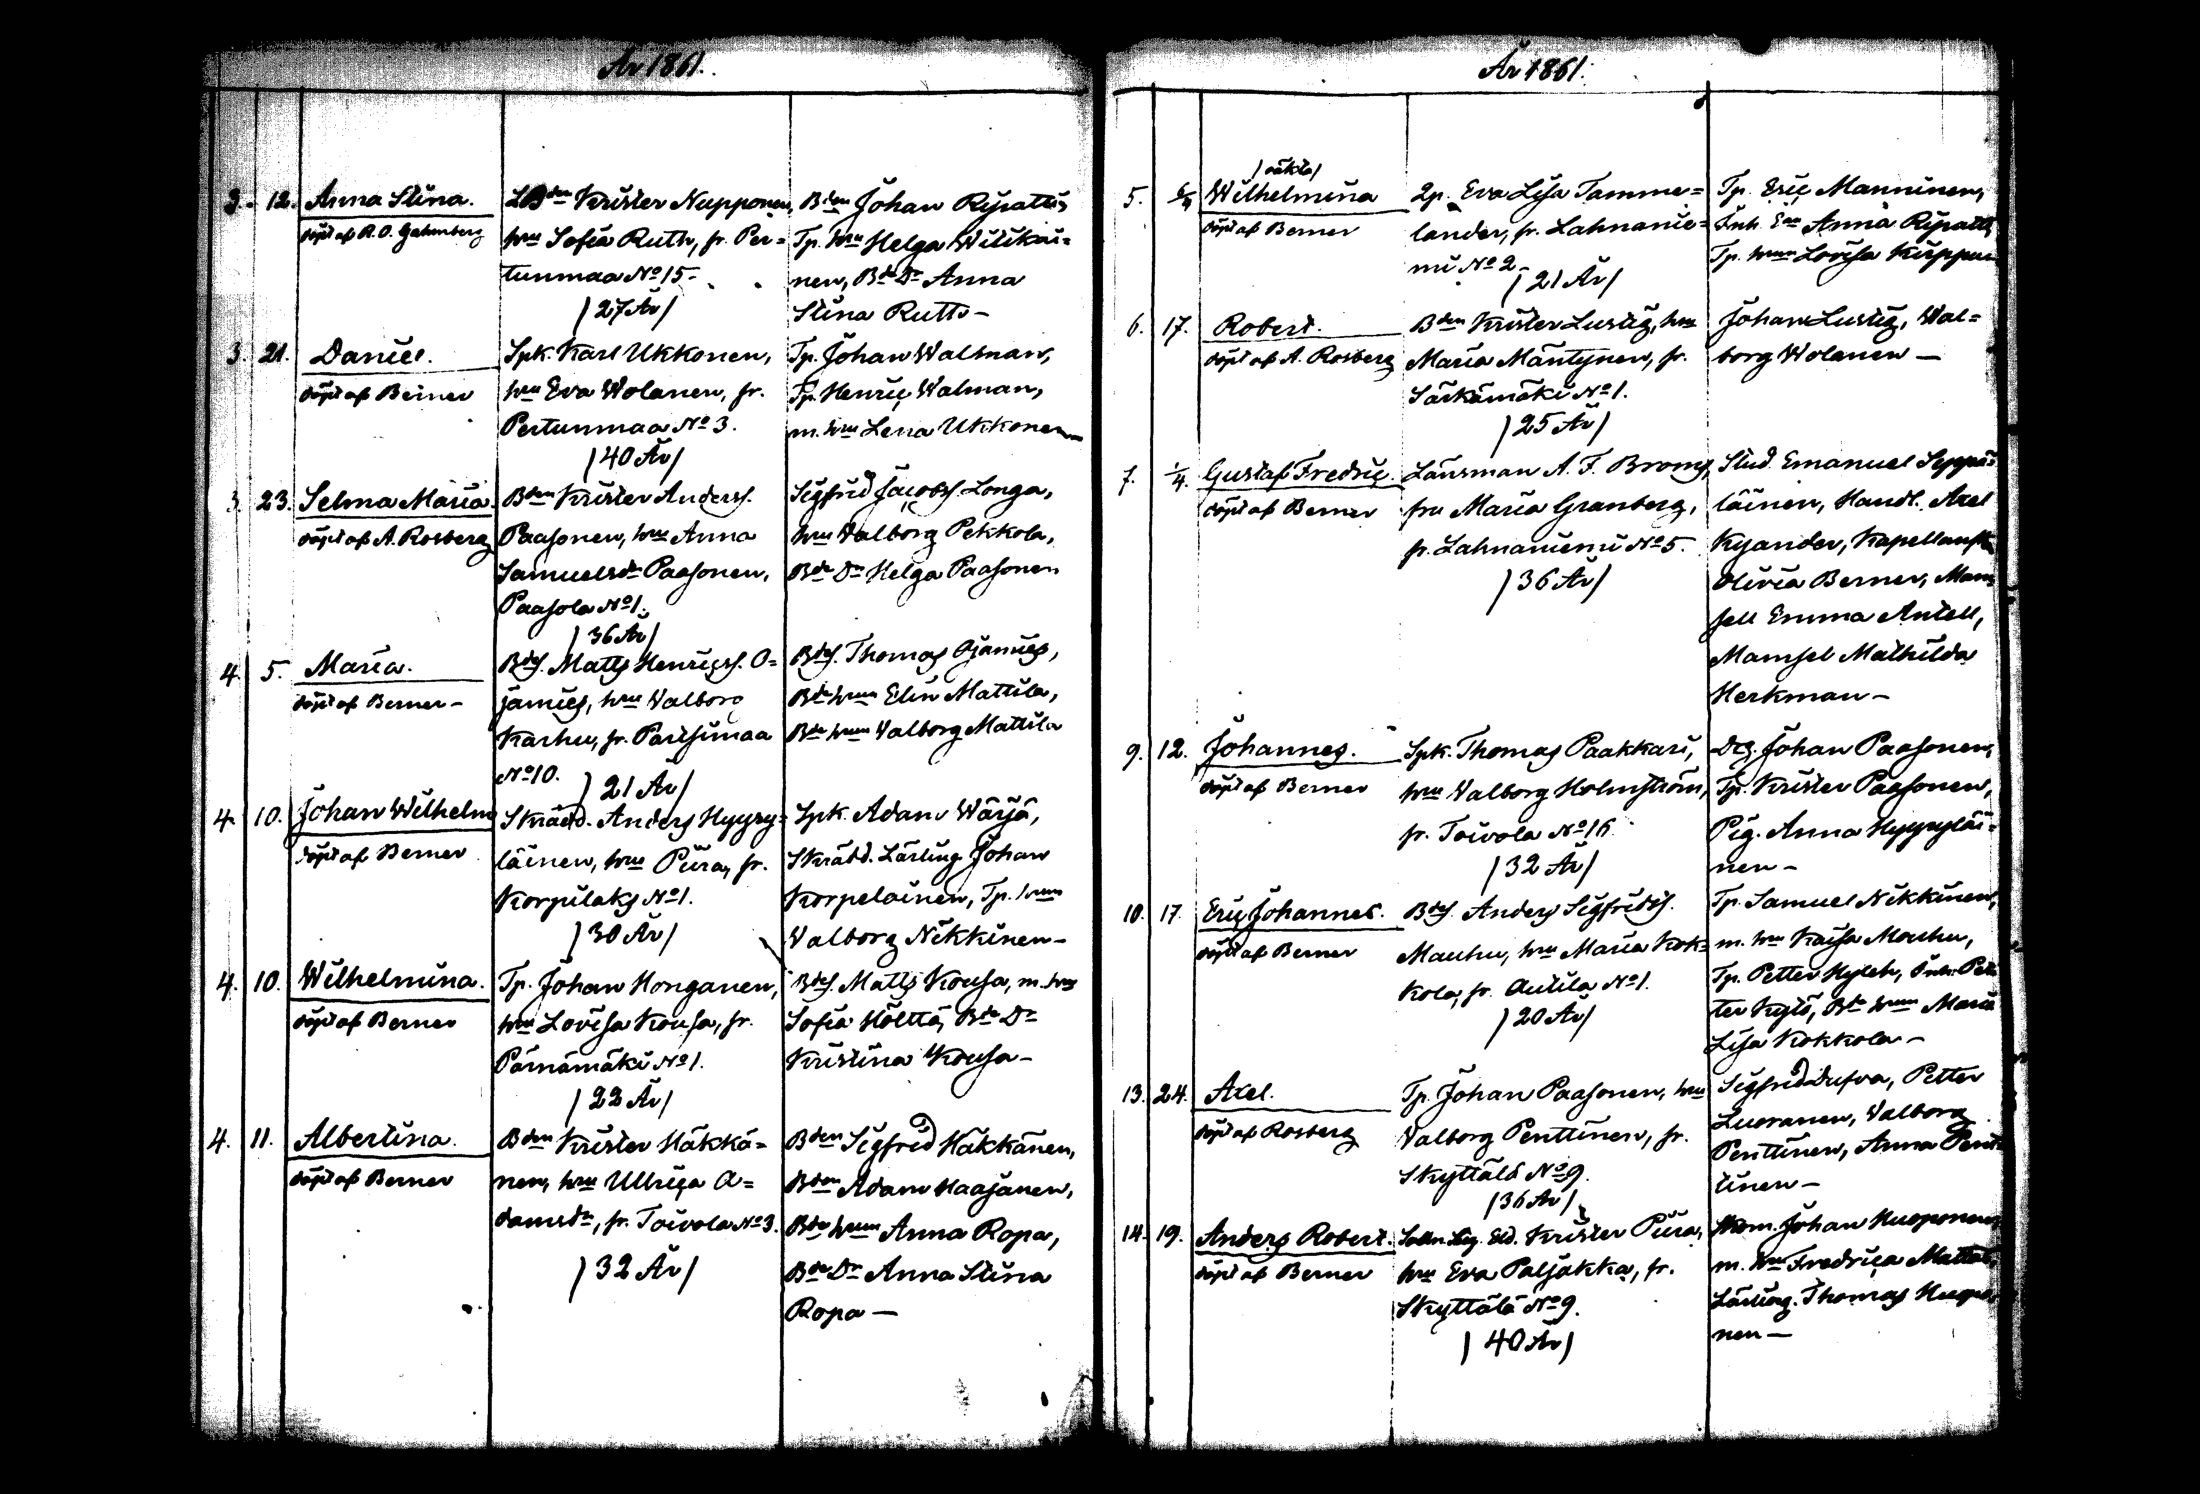 År 1861.
3. 12. Anna Stina.
döpt af R. O.
LBden Krister Nupponen,
hru Sofia Ruth, fr. Per=
tunmaa No 15.
/27 År/
Bden Johan Ripatti,
Tp. hru Helga Wilikai=
nen, Bde Dr Anna
Stina Rutts –
3. 21. Daniel.
döpt af Berner
Spk. Karl Ukkonen,
hru Eva Wolanen, fr.
Pertunmaa No 3.
/40 År/
Tp. Johan Walman,
Tp. Henric Walman,
m. hru Lena Ukkonen
3. 23. Selma Maria.
döpt af A. Rosberg
Bden Krister Anderss.
Paasonen, hru Anna
Samuelsdr Paasonen,
Paasola No 1.
/36 År/
Sigfrid Jacobss Longa,
hru Walborg Pekkola,
Bde Dr Helga Paasonen
4. 5. Maria.
döpt af Berner –
Bdes. Matts Henricss. O=
jamies, hru Walborg
Karhu, fr. Partsimaa
No 10.
/21 År/
Bdes. Thomas Ojamies,
Bde hrun Elin Mattila,
Bde hrun Valborg Mattila
4. 10. Johan Wilhelm
döpt af Berner
Skrädd. Anders Hyyry=
läinen, hru Piira, fr.
Korpilaks No 1.
/30 År/
Spk. Adam Wärjä,
Skrädd. Lärling Johan
Korpelainen, Tp. hrun
Walborg Nikkinen –
4. 10. Wilhelmina.
döpt af Berner
Tp. Johan Honganen,
hru Lovisa Kousa, fr.
Pärnämäki No 1.
/22 År/
Bdes. Matts Kousa, m. hru
Sofia Hölttä, Bde Dr
Kristina Kousa –
4. 11. Albertina.
döpt af Berner
Bden Krister Häkkä=
nen, hru Ullrica A=
damsdr, fr. Toivola No 3.
/32 År/
Bden Sigfrid Häkkänen,
Bden Adam Haajanen,
Bde hrun Anna Ropa,
Bde Dr Anna Stina
Ropa –
År 1861.
/oäkta/
5. Wilhelmina
döpt af Berner
2p. Eva Lisa Tamme=
lander, fr. Lahnanie=
mi No 2.
/21 År/
Tp. Eric Manninen,
Inh. Ena Anna Ripatti,
Tp. hrun Lovisa
6. 17. Robert.
döpt af A. Rosberg
Bden Krister Lustig, hru
Maria Mäntynen, fr.
Särkämäki No 1.
/25 År/
Johan Lustig, Wal=
borg Wolanen –
7. 1/4. Gustaf Fredric.
döpt af Berner
Länsman A. F. Broms,
fru Maria Granberg,
fr. Lahnaniemi No 5.
/36 År/
Stud. Emanuel Seppä=
läinen, Handl. Axel
Kyander, Kapellansfr.
Olivia Berner, Mam=
sell Emma Antell,
Mamsel Mathilda
Herkman –
9. 12. Johannes.
döpt af Berner
Spk. Thomas Paakkari,
hru Valborg Holmström,
fr. Toivola No 16.
/32 År/
Drg. Johan Paasonen,
Tp. Krister Paasonen,
Pig. Anna Hyyryläi=
nen –
10. 17. Eric Johannes.
döpt af Berner
Bdes. Anders Sigfridss.
Mauhu, hru Maria Kok=
kola, fr. Autila No 1.
/20 År/
Tp. Samuel Nikkinen,
m. hru Kaisa Mouhu,
Tp. Petter Inh. Pet=
ter Kylö, Bde hrun Maria
Lisa Kokkola –
13. 24. Axel.
döpt af Rosberg
Tp. Johan Paasonen, hru
Valborg Penttinen, fr.
Skyttälä No 9.
/36 År/
Sigfrid Dufva, Petter
Luoranen, Valborg
Penttinen, Anna Pent=
tinen –
14. 19. Anders Robert.
döpt af Berner
Eld. Krister Piira,
hru Eva Paljakka, fr.
Skyttälä No 9.
/40 År/
Johan Huoponen,
m. hru Fredrica
Lärling. Thomas Huopo=
nen –